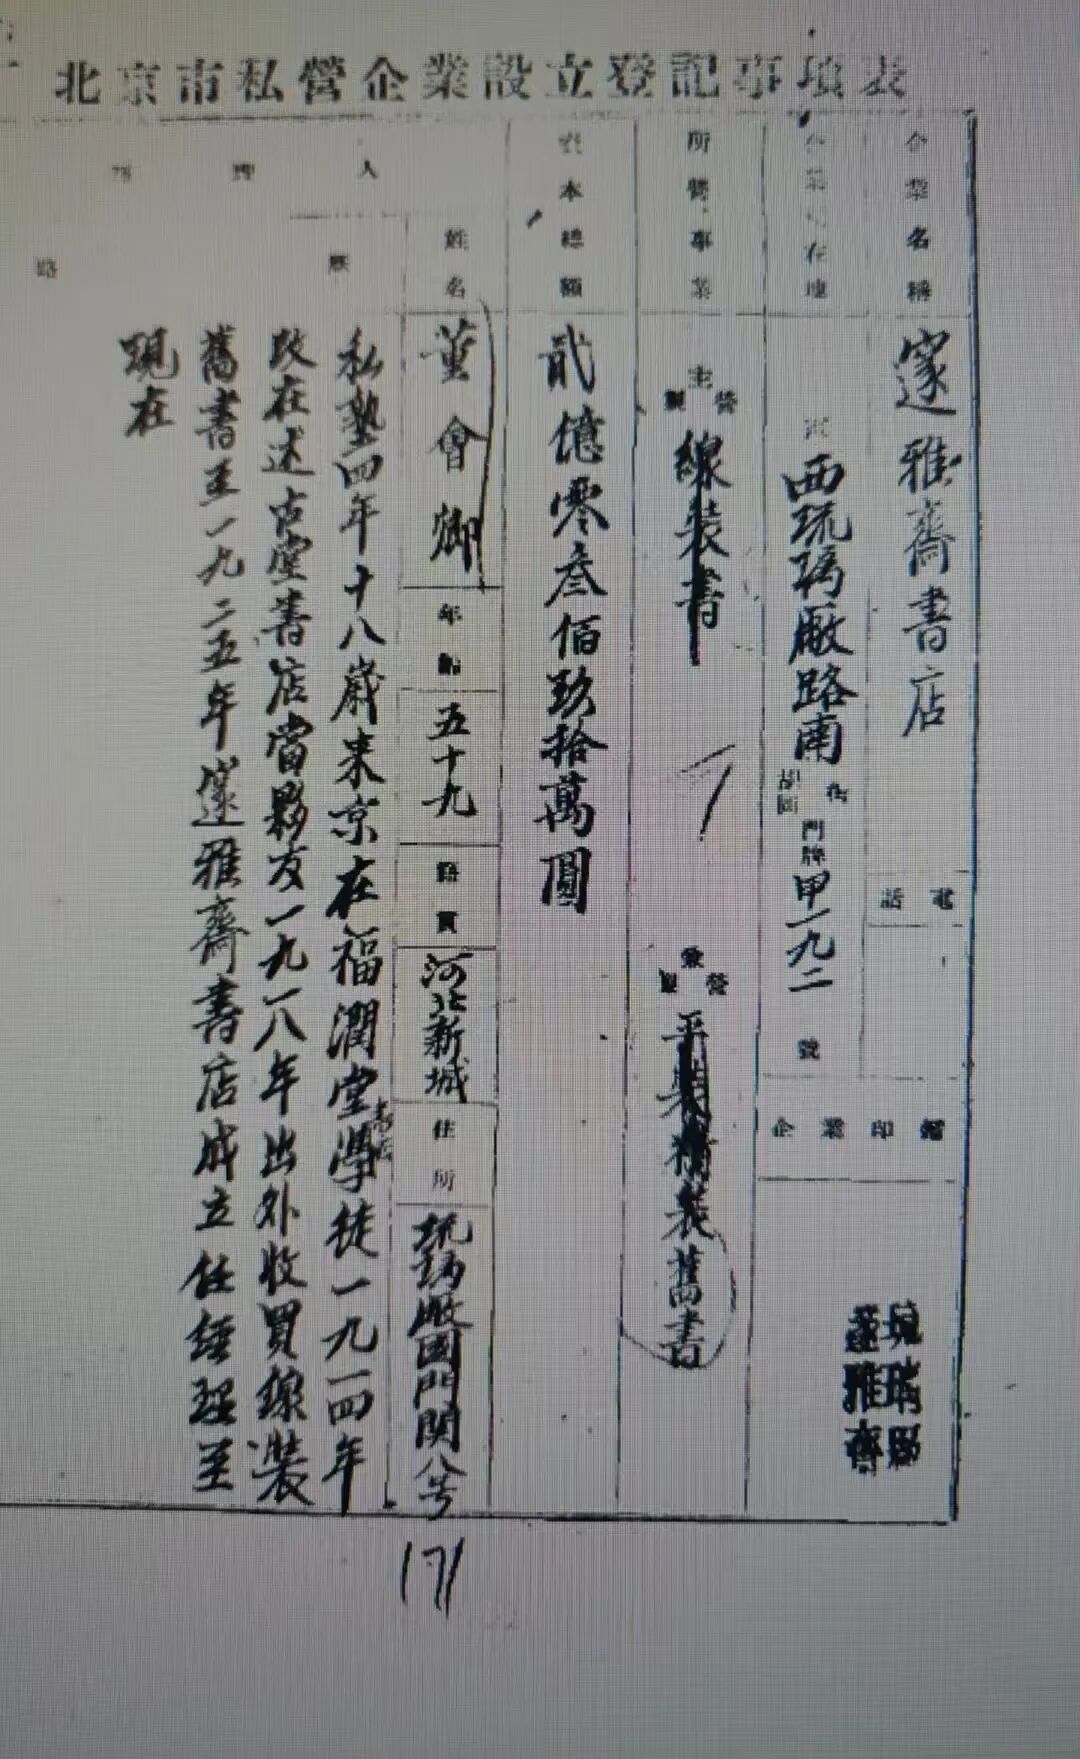 北京市私營企業設立登記事項表
企業名稱
邃雅齋書店
電話
企業所在地
西琉璃廠路南
街
胡同
門牌甲一九二號
企業印鑑
琉璃廠
邃雅齋
所營事業
主營
線裝書
兼營
平裝精裝舊書
資本總額
貳億零叁佰玖拾萬圓
人
姓名
董會卿
年齡
五十九
籍貫
河北新城
住所
琉璃廠國門関八号
歷
路
私塾四年十八歲来京在福潤堂書店學徒一九一四年
改在述古堂書店當夥友一九一八年出外收買線裝
舊書至一九二五年邃雅齋書店成立任經理至
現在
171